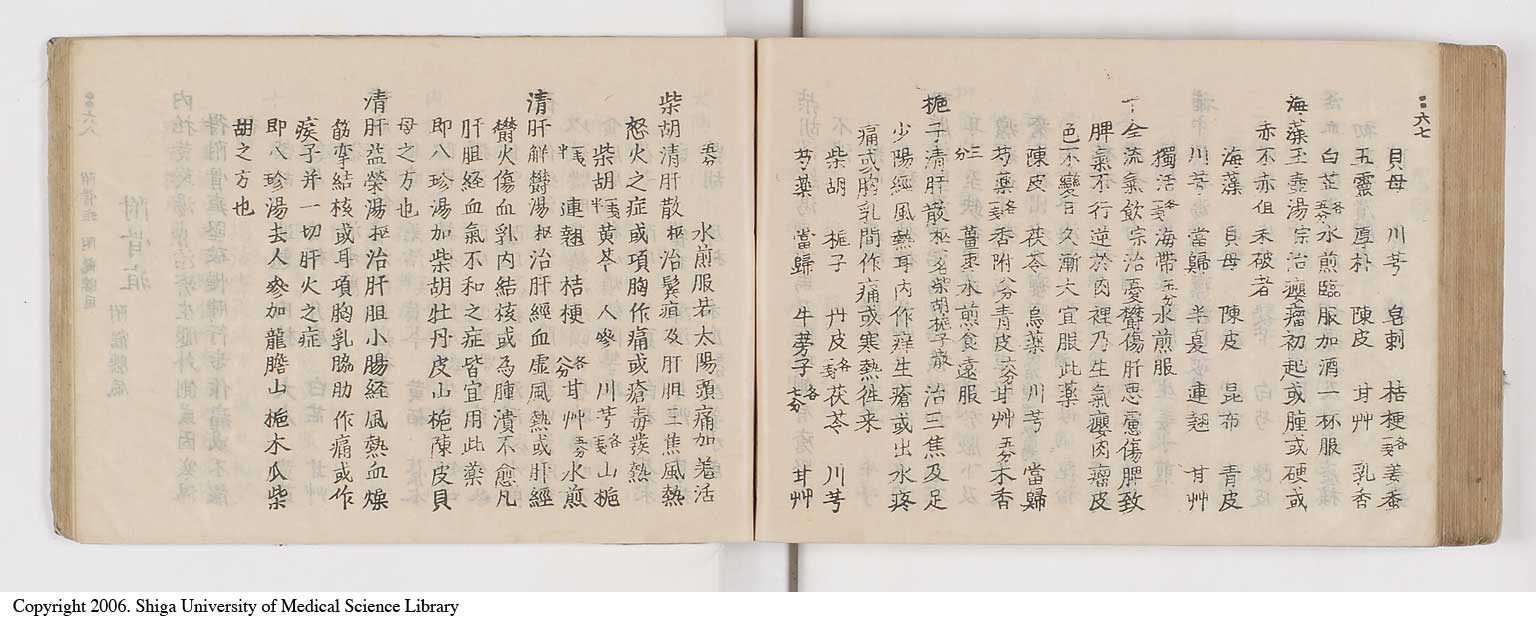 六七
貝母 川芎 皂刺 桔梗各 姜蚕
五靈 厚朴 陳皮 甘艸 乳香
白芷各 水煎臨服加酒一杯服
海藻玉壺湯 宗 治癭瘤初起或腫或硬或
赤不赤但未破者
海藻 貝母 陳皮 昆布 青皮
川芎 當歸 半夏 連翹 甘艸
獨活各 海帶五分 水煎服
十全流氣飲 宗 治憂欝傷肝思慮傷脾致
脾氣不行逆於肉裡乃生氣癭肉瘤皮
色不變日久漸大宜服此藥
陳皮 茯苓 烏藥 川芎 當歸
芍藥各 香附八分 青皮六分 甘艸五分 木香
三分 薑棗水煎食遠服
梔子清肝散 柴胡梔子散 治三焦及足
少陽經風熱耳內作痒生瘡或出水疼
痛或胸乳間作痛或寒熱往来
柴胡 梔子 丹皮各 茯苓 川芎
芍藥 當歸 牛蒡子各七分 甘艸
五分
水煎服若太陽頭痛加羌活
柴胡清肝散 樞 治鬓疽及肝胆三焦風熱
怒火之症或項胸作痛或瘡毒發熱
柴胡 黄芩 人參 川芎各 山梔
半 連翹 桔梗各 甘艸五分 水煎
清肝解欝湯 樞 治肝經血虛風熱或肝經
欝火傷血乳内結核或為腫潰不愈凡
肝胆経血氣不和之症皆宜用此藥
即八珍湯加柴胡牡丹皮山梔陳皮貝
母之方也
清肝益榮湯 樞 治肝胆小腸経風熱血燥
筋攣結核或耳項胸乳脇肋作痛或作
瘊子并一切肝火之症
即八珍湯去人參加龍膽山梔木瓜柴
胡之方也
六八